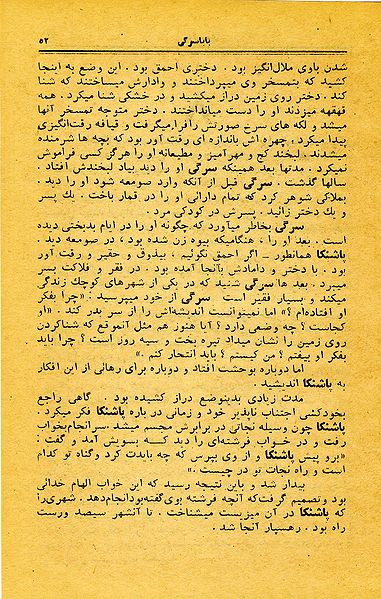 ۵۲ باباسرگی
شدن باوی ملال‌انگیز بود . دختری احمق بود . این وضع به اینجا
کشید که بتمسخر وی میپرداختند و وادارش میساختند که شنا
کند . دختر روی زمین دراز میکشید و در خشکی شنا میکرد . همه
قهقهه میزدند او را دست میانداختند . دختر متوجه تمسخر آنها
میشد و لکه های سرخ صورتش رافرا میگرفت و قیافه رقت‌انگیزی
پیدا میکرد ، چهره‌اش باندازه ای رقت آور بود که بچه ها شرمنده
میشدند . لبخند کج و مهر آمیز و مطیعانه او را هرگز کسی فراموش
نمیکرد . مدتها بعد همینکه سرگی او را دید بیاد لبخندش افتاد .
سالها گذشت . سرگی قبل از آنکه وارد صومعه شود او را دید .
بملاکی شوهر کرد که تمام دارائی او را در قمار باخت . یك پسر
و یك دختر زائید . پسرش در کودکی مرد .
سرگی بخاطر میآورد که چگونه او را در ایام بدبختی دیده
است . بعد او را ، هنگامیکه بیوه زن شده بود ، در صومعه دید .
پاشنکا همانطور ـ اگر احمق نگوئیم ، بیذوق و حقیر و رقت آور
بود . با دختر و دامادش بآنجا آمده بود . در فقر و فلاکت بسر
میبرد . بعد ها سرگی شنید که در یکی از شهرهای کوچك زندگی
میکند و بسیار فقیر است . سرگی از خود میپرسید : «چرا بفکر
او افتاده‌ام ؟» اما نمیتوانست اندیشه‌اش را از سر بدر کند . «او
کجاست ؟ چه وضعی دارد ؟ آیا هنوز هم مثل آنموقع که شناکردن
روی زمین را نشان میداد تیره بخت و سیه روز است ؟ چرا باید
بفکر او بیفتم ؟ من کیستم ؟ باید انتحار کنم .»
اما دوباره بوحشت افتاد و دوباره برای رهائی از این افکار
به پاشنکا اندیشید .
مدت زیادی بدینوضع دراز کشیده بود . گاهی راجع
بخودکشی اجتناب ناپذیر خود و زمانی در باره پاشنکا فکر میکرد .
پاشنکا چون وسیله نجاتی در برابرش مجسم میشد ، سرانجام بخواب
رفت و در خواب فرشته‌ای را دید کــه بسویش آمد و گفت :
«برو پیش پاشنکا و از وی بپرس که چه بایدت کرد و گناه تو کدام
است و راه نجات تو در چیست .»
بیدار شد و باین نتیجه رسید که این خواب الهام خدائی
بود و تصمیم گرفت که آنچه فرشته بوی گفته بود انجام دهد . شهری را
که پاشنکا در آن میزیست میشناخت . تا آنشهر سیصد ورست
راه بود . رهسپار آنجا شد .